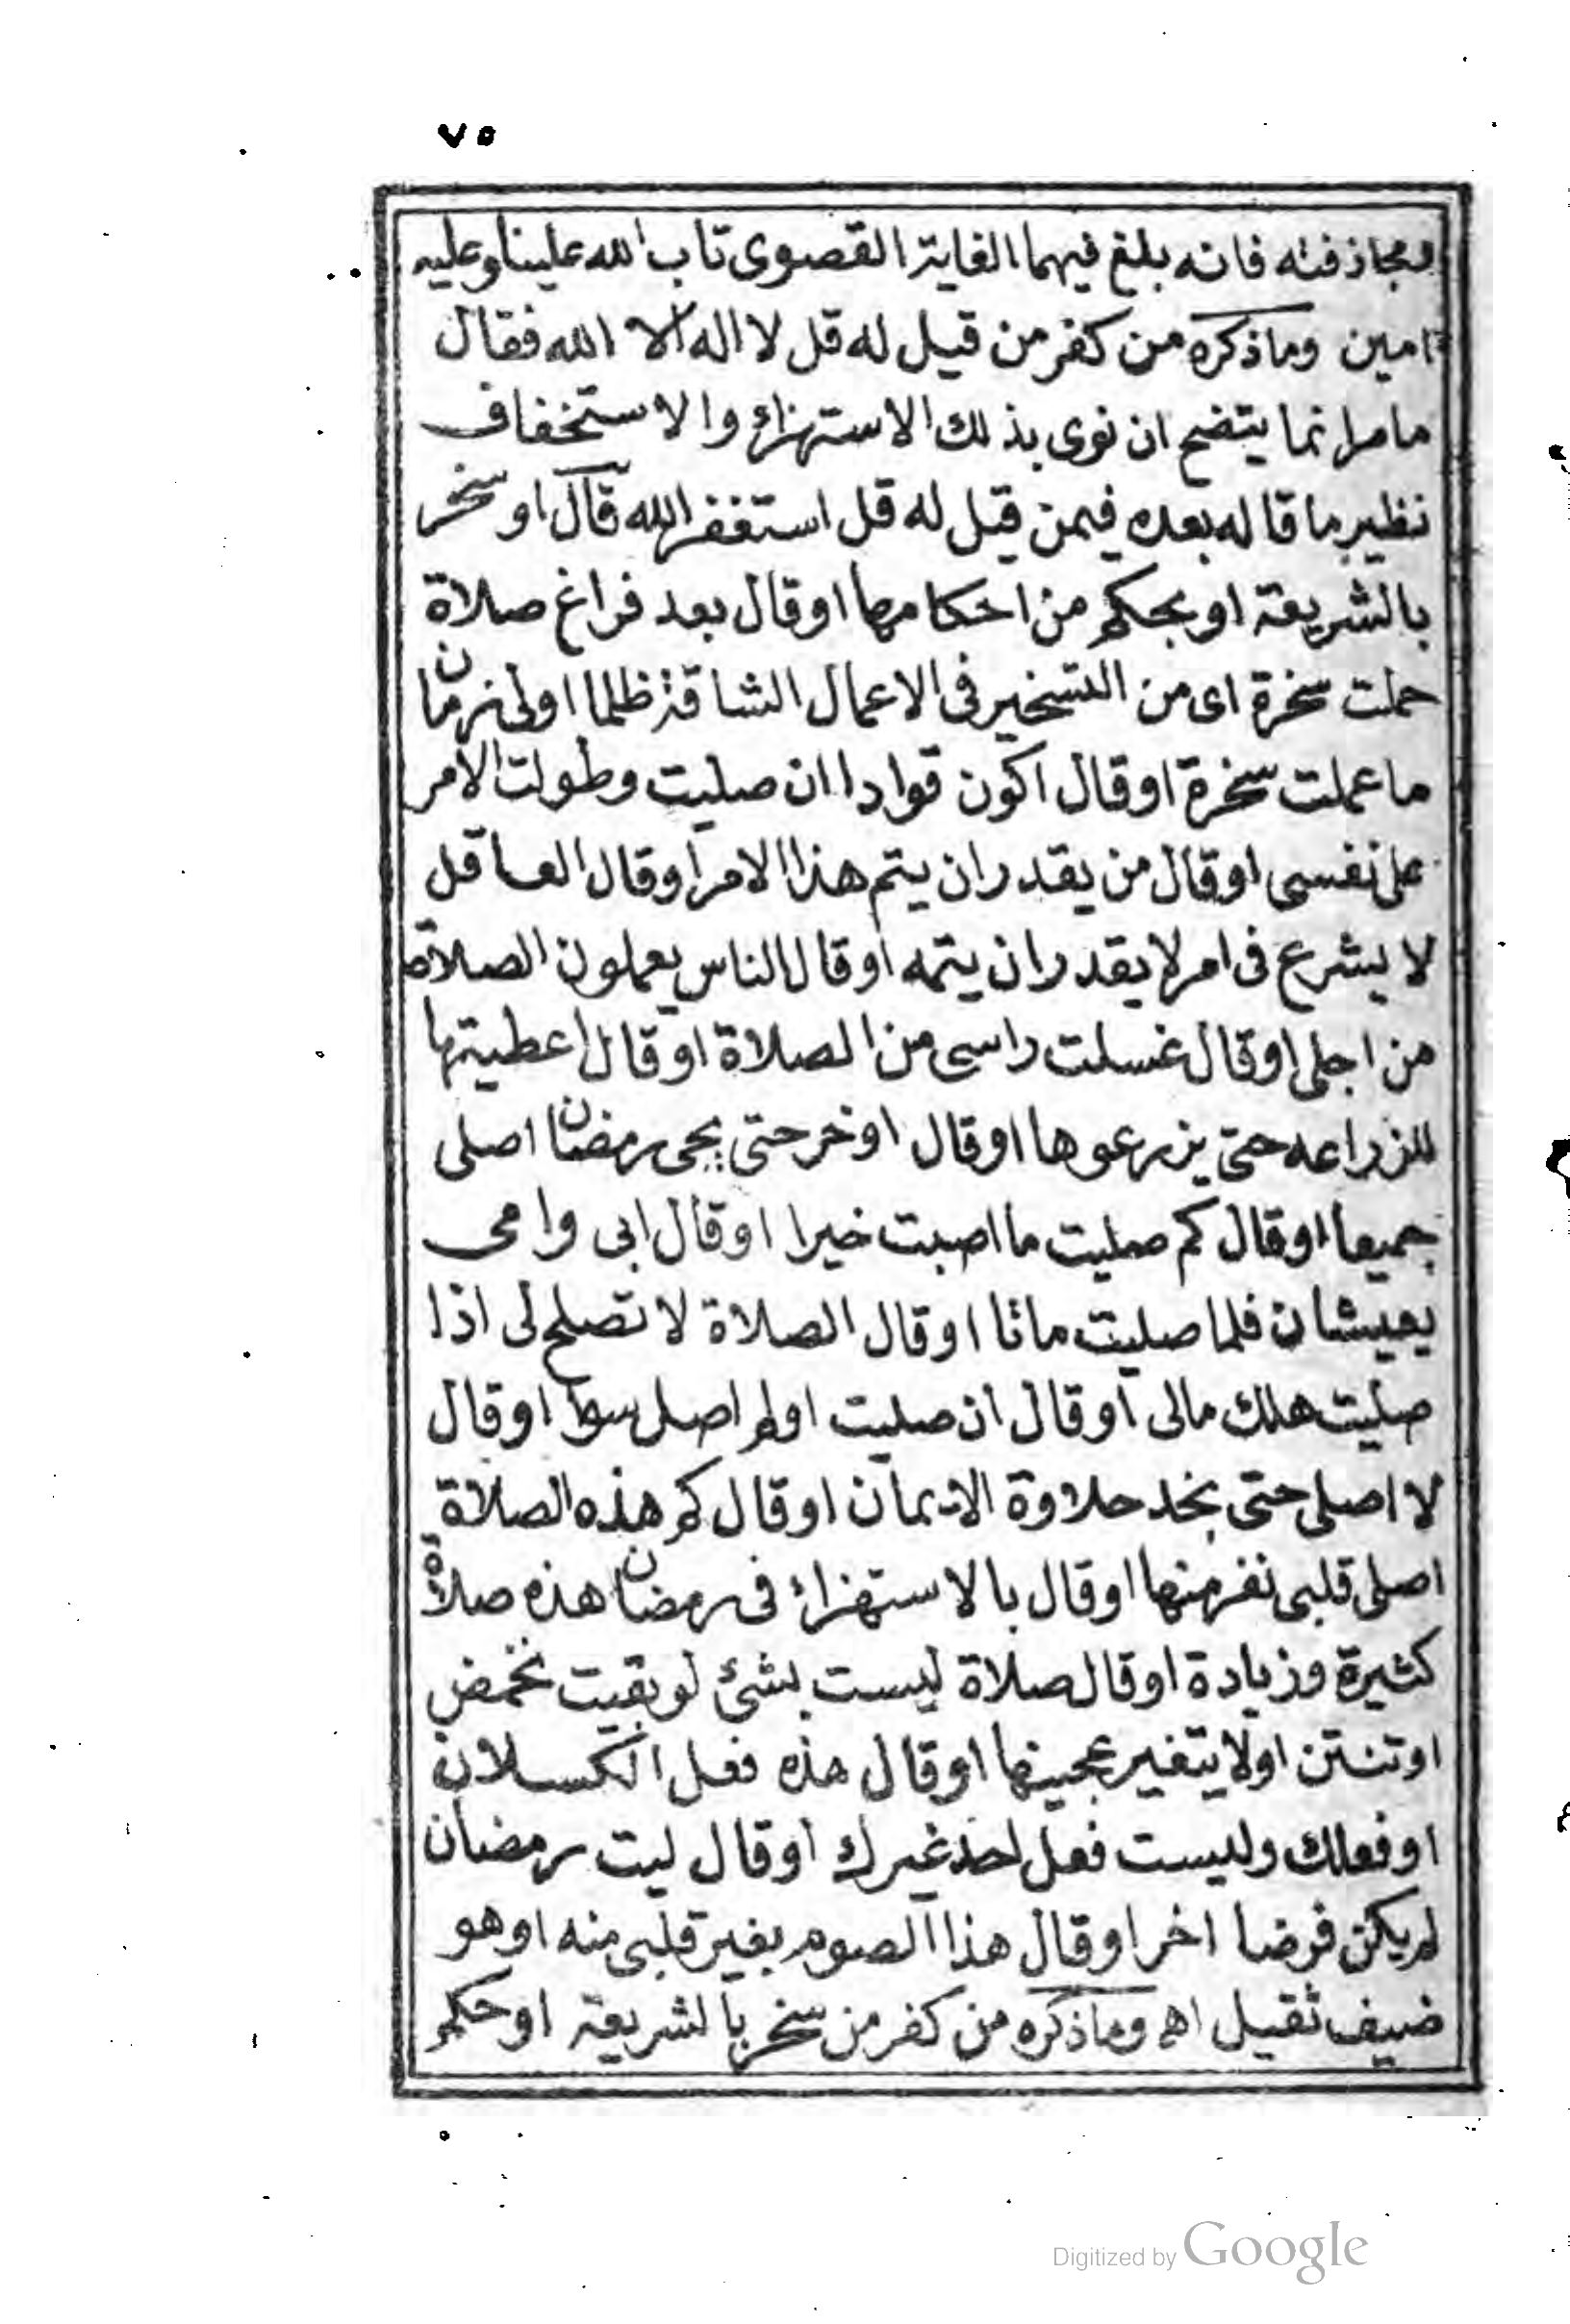 ٧٥
ومجازفته فانه بلغ فيهما الغاية القصوى تاب الله علينا وعليه
امين وماذكره من كفر من قيل له قل لا اله الا الله فقال
مامر انما يتضح ان نوى بذلك الاستهزاء والاستخفاف
نظير ما قاله بعده فيمن قيل له قل استغفر الله قال او سخر
بالشريعة او بحكم من احكامها اوقال بعد فراغ صلاة
حملت سخرة اى من التسخير فى الاعمال الشاقة ظلما اولى زمان
ماعملت سخرة اوقال اكون قوادا ان صليت وطولت الامر
على نفسى اوقال من يقدر ان يتم هذا الامر اوقال العاقل
لا يشرع فى امر لا يقدر ان يتمه اوقال الناس يعملون الصلاة
من اجلى اوقال غسلت راسى من الصلاة اوقال اعطيتها
للزراعه حتى يزرعوها اوقال اوخر حتى يجى رمضان اصلى
جميعا اوقال كم صليت ما اصبت خيرا اوقال ابى وامى
يعيشان فلما صليت ماتا اوقال الصلاة لا تصلح لى اذا
صليت هلك مالى اوقال ان صليت اولم اصل سوا اوقال
لا اصلى حتى نجد حلاوة الايمان اوقال كم هذه الصلاة
اصلى قلبى نفر منها اوقال بالاستهزاء فى رمضان هذه صلاة
كثيرة وزيادة اوقال صلاة ليست بشئ لو بقيت تخمض
اوتنتن اولا يتغير عجينها اوقال هذه فعل الكسلان
اوفعلك وليست فعل احد غيرك اوقال ليت رمضان
لم يكن فرضا اخر اوقال هذا الصوم بغير قلبى منه اوهو
ضيف ثقيل اهـ وماذكره من كفر من سخر بالشريعة اوحكم
Digitized by Google